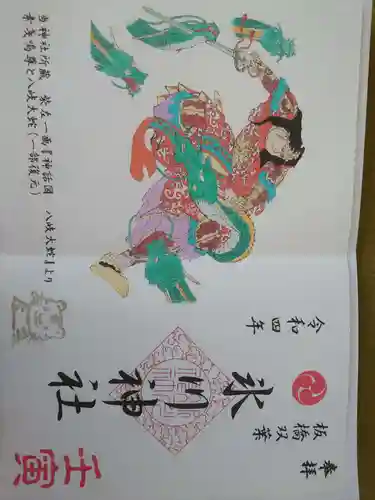 当神社所蔵 葵左一画『神話図 八岐大蛇』より
素戔嗚尊と八岐大蛇（一部復元）
奉拝
板橋双葉
氷川神社
令和四年
壬寅